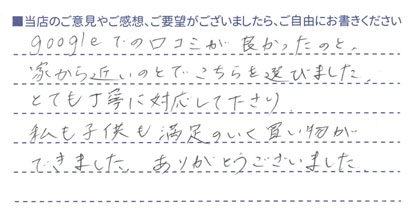 ■当店のご意見やご感想、ご要望がございましたら、ご自由にお書きください
googleでの口コミが良かったのと、
家から近いのとでこちらを選びました。
とても丁寧に対応して下さり
私も子供も満足のいく買い物が
できました。ありがとうございました。